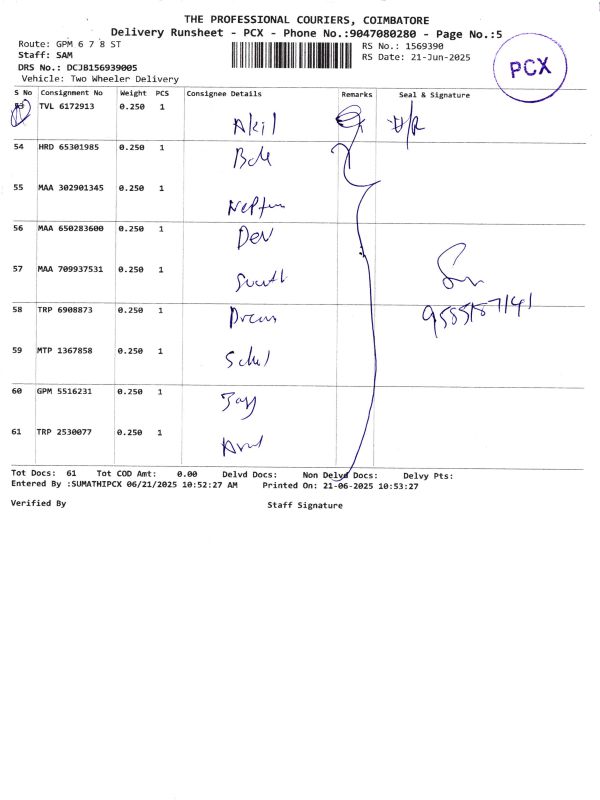 THE PROFESSIONAL COURIERS, COIMBATORE
Delivery Runsheet - PCX - Phone No.:9047080280 - Page No.:5
Route: GPM 6 7 8 ST
RS No.: 1569390
Staff: SAM
RS Date: 21-Jun-2025
DRS No.: DCJB156939005
Vehicle: Two Wheeler Delivery
PCX
S No Consignment No Weight PCS Consignee Details Remarks Seal & Signature
TVL 6172913 0.250 1 Akil
54 HRD 65301985 0.250 1
55 MAA 302901345 0.250 1
56 MAA 650283600 0.250 1 Dev
57 MAA 709937531 0.250 1
58 TRP 6908873 0.250 1
59 MTP 1367858 0.250 1
60 GPM 5516231 0.250 1
61 TRP 2530077 0.250 1
Tot Docs: 61 Tot COD Amt: 0.00 Delvd Docs: Non Delvd Docs: Delvy Pts:
Entered By :SUMATHIPCX 06/21/2025 10:52:27 AM Printed On: 21-06-2025 10:53:27
Verified By Staff Signature